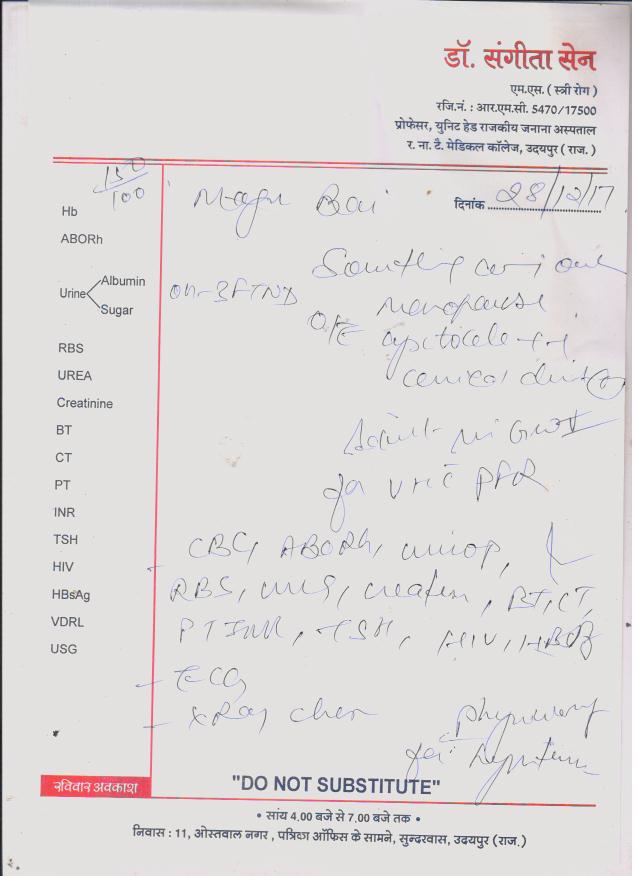 डॉ. संगीता सेन
एम.एस. ( स्त्री रोग )
रजि.नं. : आर.एम.सी. 5470/17500
प्रोफेसर, युनिट हेड राजकीय जनाना अस्पताल
र. ना. टै. मेडिकल कॉलेज, उदयपुर ( राज. )
150/100
Bai
दिनांक 28/12/17
Hb
ABORh
Urine Albumin
Sugar
Something coming out
menopause
O/E cystocele ++
RBS
UREA
Creatinine
BT
CT
PT
INR
TSH
HIV
HBsAg
VDRL
USG
Admit in
for VH c PFR
CBC, ABORh,
RBS, urea, creatin, BT, CT,
PT INR, TSH, HIV, HBsAg
- ECG
- X Ray chest
for
रविवार अवकाश
"DO NOT SUBSTITUTE"
• सांय 4.00 बजे से 7.00 बजे तक •
निवास : 11, ओस्तवाल नगर , पत्रिका ऑफिस के सामने, सुन्दरवास, उदयपुर (राज.)